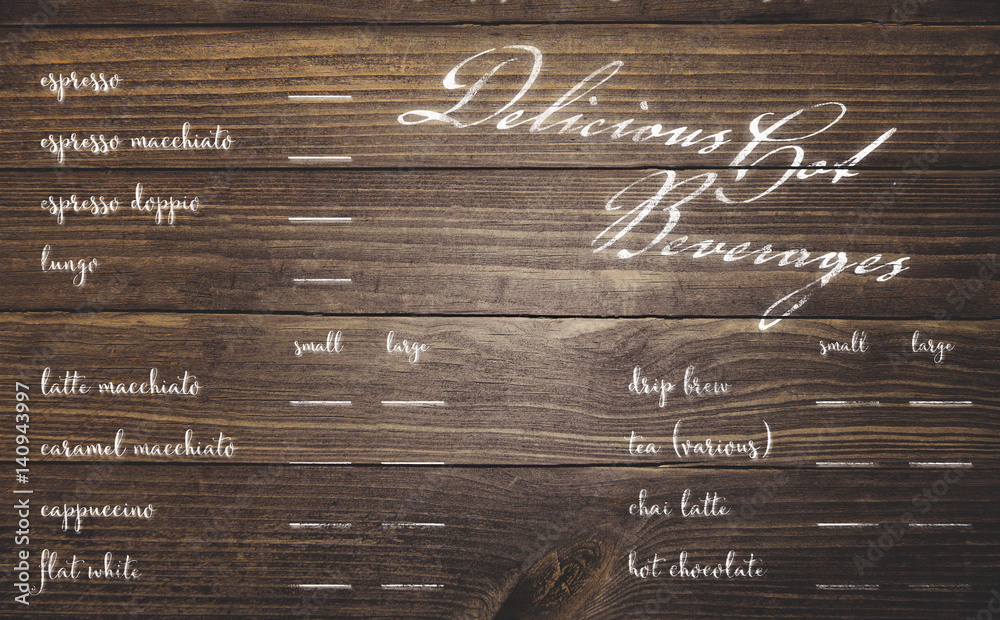 Delicious Hot
Beverages
espresso
espresso macchiato
espresso doppio
lungo
small large
latte macchiato
caramel macchiato
cappuccino
flat white
small large
drip brew
tea (various)
chai latte
hot chocolate
Adobe Stock | 140943997